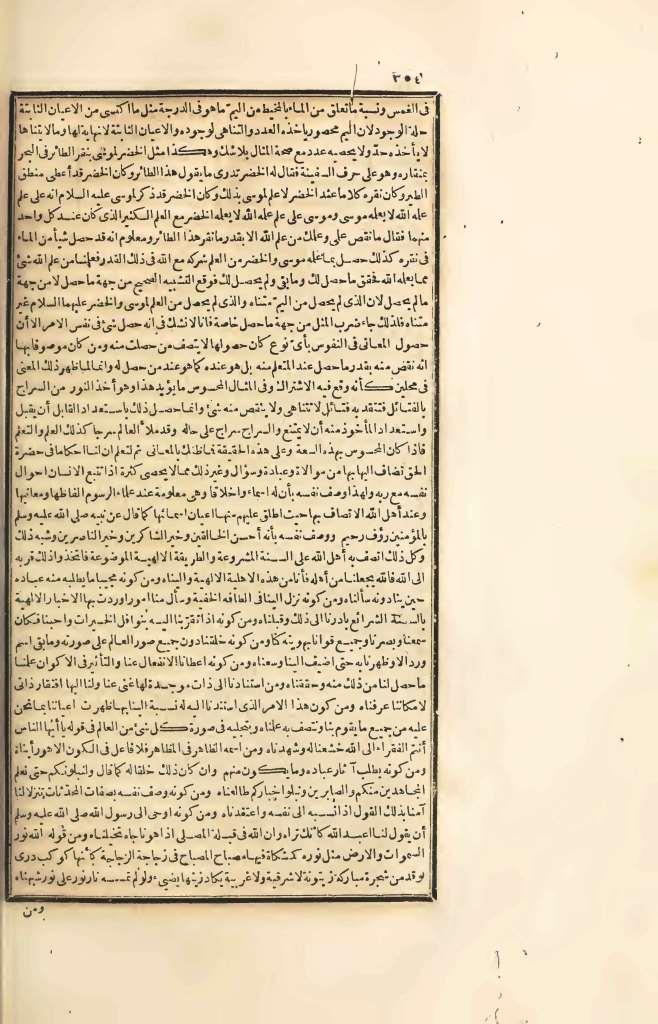 ٣٥٤
فى الغمس ونسبة ما تعلق من الماء بالمخيط من اليم ما هو فى الدرجة مثل ما اكتسى من الاعيان الثابتة
حلة الوجود لان اليم محصور يأخذه العدد والتناهى لوجوده والاعيان الثابتة لا نهاية لها وما لا يتناهى
لا يأخذه حد ولا يحصيه عدد مع صحة المثال بلا شك وهكذا مثل الخضر لموسى بنقر الطائر فى البحر
بمنقاره وهو على حرف السفينة فقال له الخضر تدرى ما يقول هذا الطائر وكان الخضر قد أعطى منطق
الطير وكان نقره كلاما عند الخضر لا علم لموسى بذلك وكان الخضر قد ذكر لموسى عليه السلام انه على علم
علمه الله لا يعلمه موسى وموسى على علم علمه الله لا يعلمه الخضر مع العلم الكثير الذى كان عند كل واحد
منهما فقال ما نقص علمى وعلمك من علم الله الا بقدر ما نقر هذا الطائر ومعلوم انه قد حصل شيأ من الماء
فى نقره كذلك حصل بما علمه موسى والخضر من العلم شركه مع الله فى ذلك القدر فعلمنا من علم الله شئ
مما يعلمه الله فحقق ما حصل لك وما بقى ولم يحصل لك فوقع التشبيه الصحيح من جهة ما حصل لا من جهة
ما لم يحصل لان الذى لم يحصل من اليم متناه والذى لم يحصل من العلم لموسى والخضر عليهما السلام غير
متناه فلذلك جاء ضرب المثل من جهة ما حصل خاصة فانا لا نشك فى انه حصل شئ فى نفس الامر الا أن
حصول المعانى فى النفوس بأى نوع كان حصولها لا يتصف من حصلت منه ومن كان موصوفا بها
انه نقص منه بقدر ما حصل عند المتعلم منه بل هو عنده كما هو عند من حصل له وانما لما ظهر ذلك المعنى
فى محلين كأنه وقع فيه الاشتراك وفى المثال المحسوس ما يؤيد هذا وهو أخذ النور من السراج
بالفتائل فتتقد به فتائل لا تتناهى ولا ينقص منه شئ وانما حصل ذلك باستعداد القابل أن يقبل
واستعداد المأخوذ منه أن لا يمتنع والسراج سراج على حاله وقد ملأ العالم سرجا كذلك العلم والتعلم
فاذا كان المحسوس بهذه السعة وعلى هذه الحقيقة فما ظنك بالمعانى ثم لتعلم ان لنا احكاما فى حضرة
الحق تضاف الينا بها من موالاة وعبادة وسؤال وغير ذلك مما لا يحصى كثرة اذا تتبع الانسان احوال
نفسه مع ربه ولهذا وصف نفسه بأن له اسماء واخلاقا وهى معلومة عند علماء الرسوم الفاظها ومعانيها
وعند أهل الله الاتصاف بها حيث اطلق عليهم منها اعيان اسمائها كما قال عن نبيه صلى الله عليه وسلم
بالمؤمنين رؤف رحيم ووصف نفسه بأنه أحسن الخالقين وخير الشاكرين وخير الناصرين وشبه ذلك
وكل ذلك اتصف به أهل الله على السنة المشروعة والطريقة الالهية الموضوعة فاتخذوا ذلك قربة
الى الله فالله يجعلنا من أهله فانا من هذه الاهلية الالهية والينا ومن كونه مجيبا ما يطلبه منه عباده
حين ينادونه سألناه ومن كونه نزل الينا فى الطافه الخفية وسأل منا امورا وردت بها الاخبار الالهية
بألسنة الشرائع بادرنا الى ذلك وقبلناه ومن كونه اذا تقربنا اليه بنوافل الخيرات واحبنا فكان
سمعنا وبصرنا وجميع قوانا بهويته كنا ومن كونه خلقنا دون جميع صور العالم على صورته وما بقى اسم
ورد الا وظهرنا به حتى اضيف الينا وسعناه ومن كونه اعطانا الانفعال عنا والتأثير فى الاكوان علمنا
ما حصل لنا من ذلك منه وحققناه ومن استنادنا الى ذات موجدة لها غنى عنا ولنا اليها افتقار ذاتى
لامكاننا عرفناه ومن كون هذا الامر الذى استندنا اليه له نسبة الينا بها ظهرت اعياننا بما نحن
عليه من جميع ما يقوم بنا ونتصف به علمناه وبتجليه فى صورة كل شئ من العالم فى قوله يا أيها الناس
أنتم الفقراء الى الله خشعنا له وشهدناه ومن اسمه الظاهر فى المظاهر فلا فاعل فى الكون الا هو رأيناه
ومن كونه يطلب آثار عباده وما يكون منهم وان كان ذلك خلقا له كما قال ولنبلونكم حتى نعلم
المجاهدين منكم والصابرين ونبلو اخباركم طالعناه ومن كونه وصف نفسه بصفات المحدثات تنزلا لنا
آمنا بذلك القول اذ نسبه الى نفسه واعتقدناه ومن كونه اوحى الى رسول الله صلى الله عليه وسلم
أن يقول لنا اعبد الله كأنك تراه وان الله فى قبلة المصلى اذا هو ناجاه تخيلناه ومن قوله الله نور
السموات والارض مثل نوره كمشكاة فيها مصباح المصباح فى زجاجة الزجاجة كأنها كوكب درى
توقد من شجرة مباركة زيتونة لا شرقية ولا غربية يكاد زيتها يضىء ولو لم تمسسه نار نور على نور شبهناه
ومن